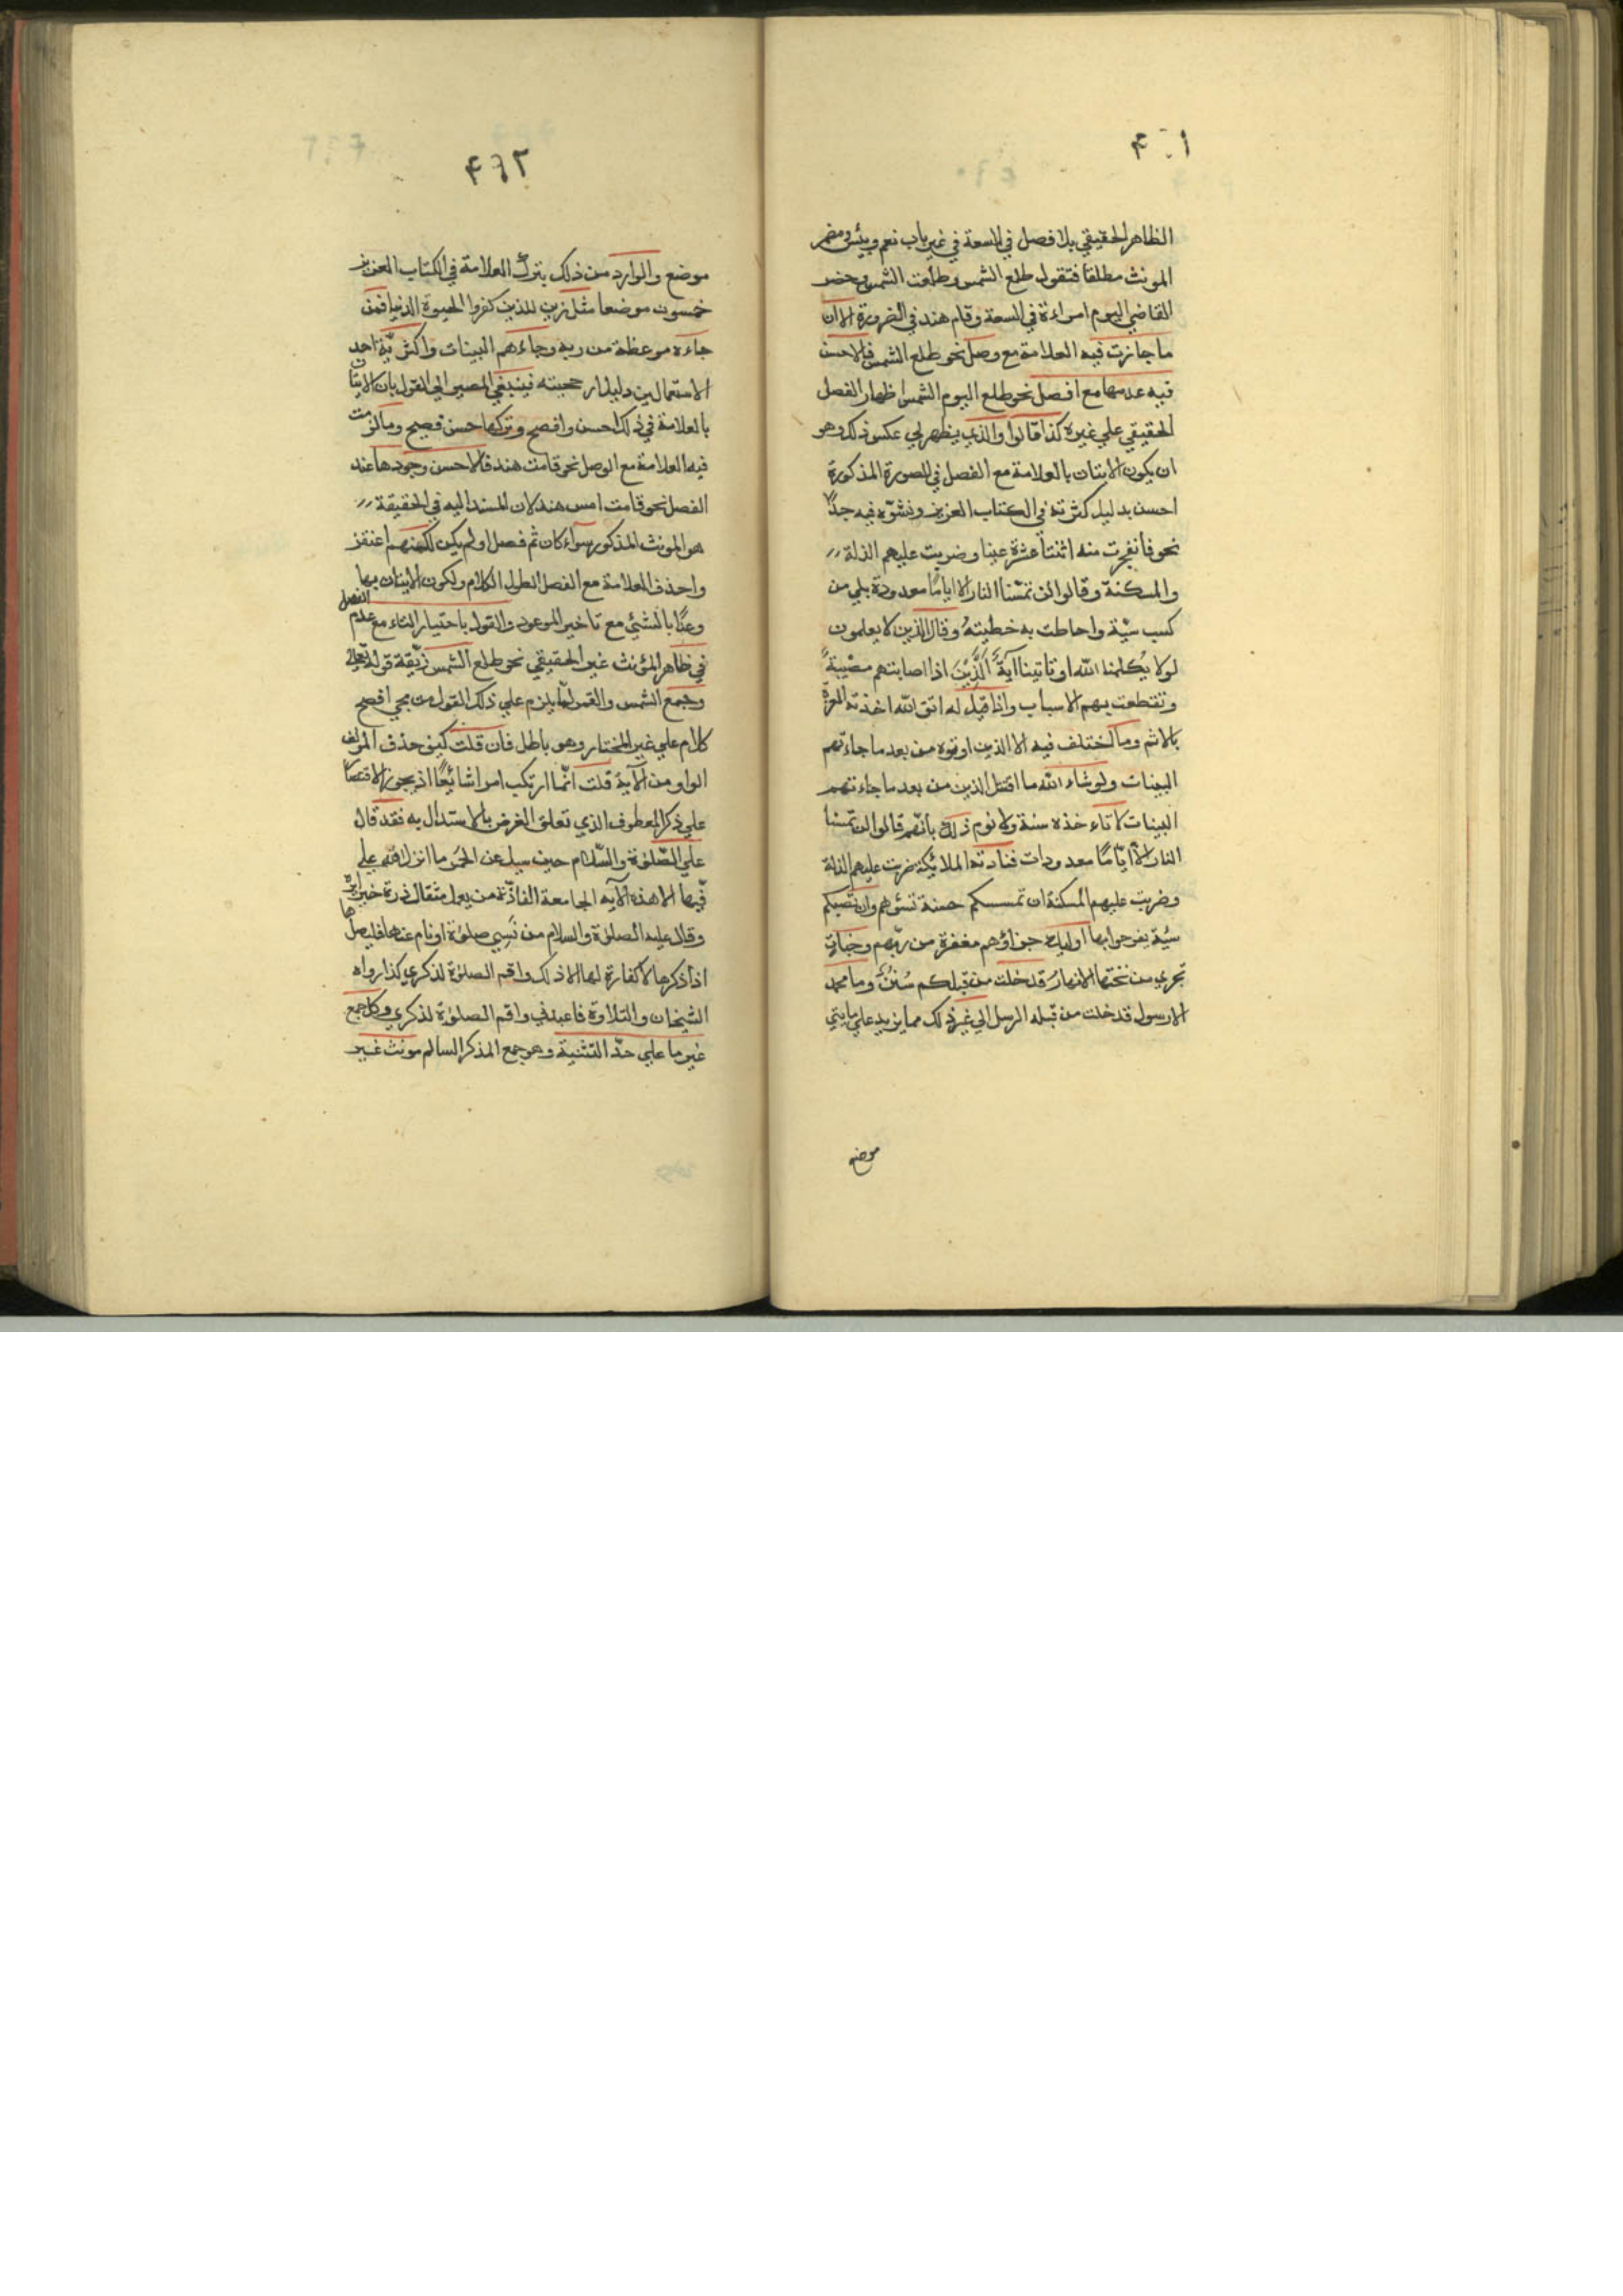 الظاهر الحقيقي بلا فصل في السعة في غير باب نعم وبئس ومضمر
المونث مطلقا فتقول طلع الشمس وطلعت الشمس وحضر
القاضي اليوم امراءة في السعة وقام هند في الضرورة الا ان
ما جازت فيه العلامة مع وصل نحو طلع الشمس فالاحسن
فيه عدمها مع افصل نحو طلع اليوم الشمس اظهار الفصل
الحقيقي علي غيره كذا قالوا والذي يظهر لي عكس ذلك وهو
ان يكون الايتان بالعلامة مع الفصل في الصورة المذكورة
احسن بدليل كثرته في الكتاب العزيز وفشوه فيه جدًّا
نحو فانفجرت منه اثنتا عشرة عينا وضربت عليهم الذلة
والمسكنة وقالوا لن تمسّنا النار الا ايامًا معدودة بلي من
كسب سيّة واحاطت به خطيئته وقال الذين لا يعلمون
لولا يُكلمنا الله او تاتينا آيةٌ اَلَّذِيْنَ اذا اصابتهم مصيبةٌ
وتقطعت بهم الاسباب واذا قيل له اتق الله اخذته العزة
بالاثم وما اختلف فيه الا الذين اوتوه من بعد ما جاءتهم
البينات ولو شاء الله ما اقتتل الذين من بعد ما جاءتهم
البينات لا تاءخذه سنة ولا نوم ذلك بانّهم قالوا لن تمسنا
النار الا ايّامًا معدودات فنادته الملائيكة ضربت عليهم الذلة
وضربت عليهم المسكنة ان تمسسكم حسنة تسئوهم وان تصبكم
سيّة يفرحوا بها اوليك جزاؤهم مغفرة من ربّهم وجنات
تجري من تحتها الانهار قد خلت من قبلكم سُنَنٌ وما محمد
الا رسول قد خلت من قبله الرسل الي غير ذلك مما يزيد علي مايتي
موضع
۴٦٢
موضع والوارد من ذلك بترك العلامة في الكتاب العزيز
خمسون موضعا مثل زين للذين كفروا الحيوة الدنيا فمن
جاءه موعظة من ربه وجاءهم البينات واكثريّة احد
الاستعمالين دليل ارجحيته فينبغي المصير الي القول بان الايتان
بالعلامة في ذلك احسن وافصح وتركها حسن فصيح وما لزمت
فيه العلامة مع الوصل نحو قامت هند فالاحسن وجودها عند
الفصل نحو قامت امس هند لان المسند اليه في الحقيقة
هو المونث المذكور سواء كان ثم فصل او لم يكن لكنهم اغتفروا
حذف العلامة مع الفصل لطول الكلام ولكون الايتان بها
وعدًا بالشيئ مع تاخير الموعود والقول باختيار التاء مع عدم الفصل
في ظاهر المؤنث غير الحقيقي نحو طلع الشمس زيّفه قوله تعالي
وجمع الشمس والقمر لما يلزم علي ذلك القول من مجي افصح
كلام علي غير المختار وهو باطل فان قلت كيف حذف المولف
الواو من الآية قلت انّما ارتكب امرا شائيعًا اذ يجوز الاقتصار
علي ذكر المعطوف الذي تعلق الغرض بالاستدلال به فقد قال
علي الصّلوة والسّلام حين سيل عن الحمر ما انزل الله علي
فيها الا هذه الآيه الجامعة الفاذّة من يعمل مثقال ذرة خيرا يره
وقال عليه الصلوة والسلام من نَسِي صلوة او نام عنها فليصلها
اذا ذكرها لا كفارة لها الا ذلك واقم الصلوة لذكري كذا رواه
الشيخان والتلاوة فاعبدني واقم الصلوة لذكري وكل جمع
غير ما علي حدّ التثنية وهو جمع المذكر السالم مونث غير